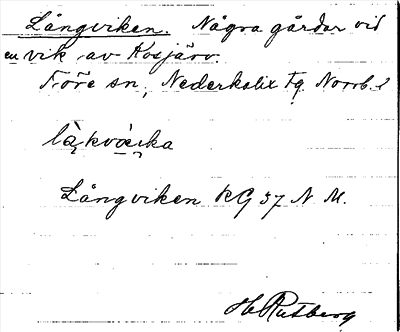 Långviken. Några gårdar vid
en vik av Kosjärv.
Töre sn, Nederkalix tg. Norrb. l
Långviken RG 37 N M.
H Rutberg